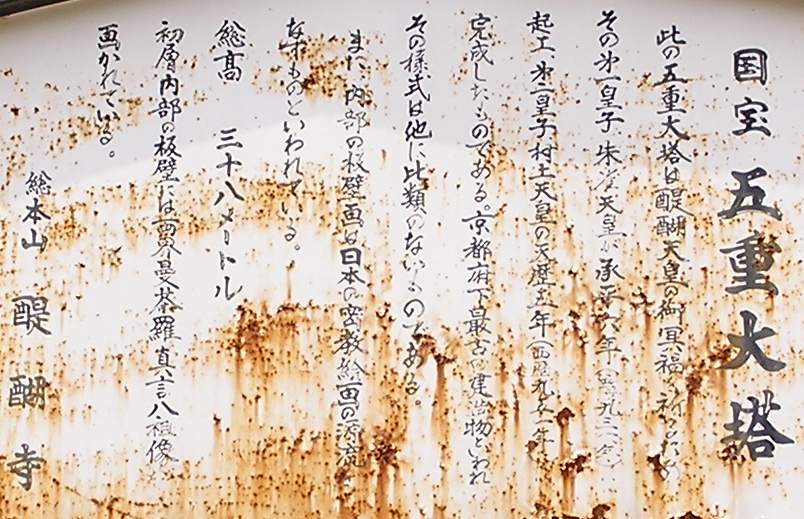 国宝 五重大塔
此の五重大塔は醍醐天皇の御冥福を祈るため
その第一皇子朱雀天皇が承平六年(西暦九三六年)に
起工、第二皇子村上天皇の天歴五年(西暦九五一年)
完成したものである。京都府下最古の建造物といわれ
その様式は他に比類のないものである。
また、内部の板壁画は日本の密教絵画の源流
なすものといわれている。
総高 三十八メートル
初層内部の板壁には両界曼荼羅真言八祖像が
画かれている。
総本山 醍醐寺